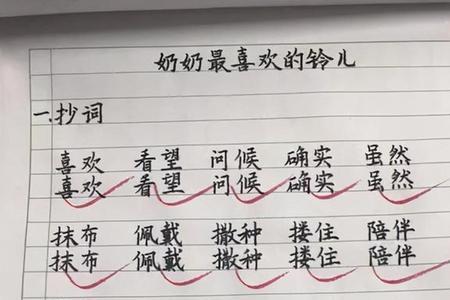 奶奶最喜欢的铃儿
一.抄词
喜欢 看望 问候 确实 虽然
喜欢 看望 问候 确实 虽然
抹布 佩戴 撒种 搂住 陪伴
抹布 佩戴 撒种 搂住 陪伴